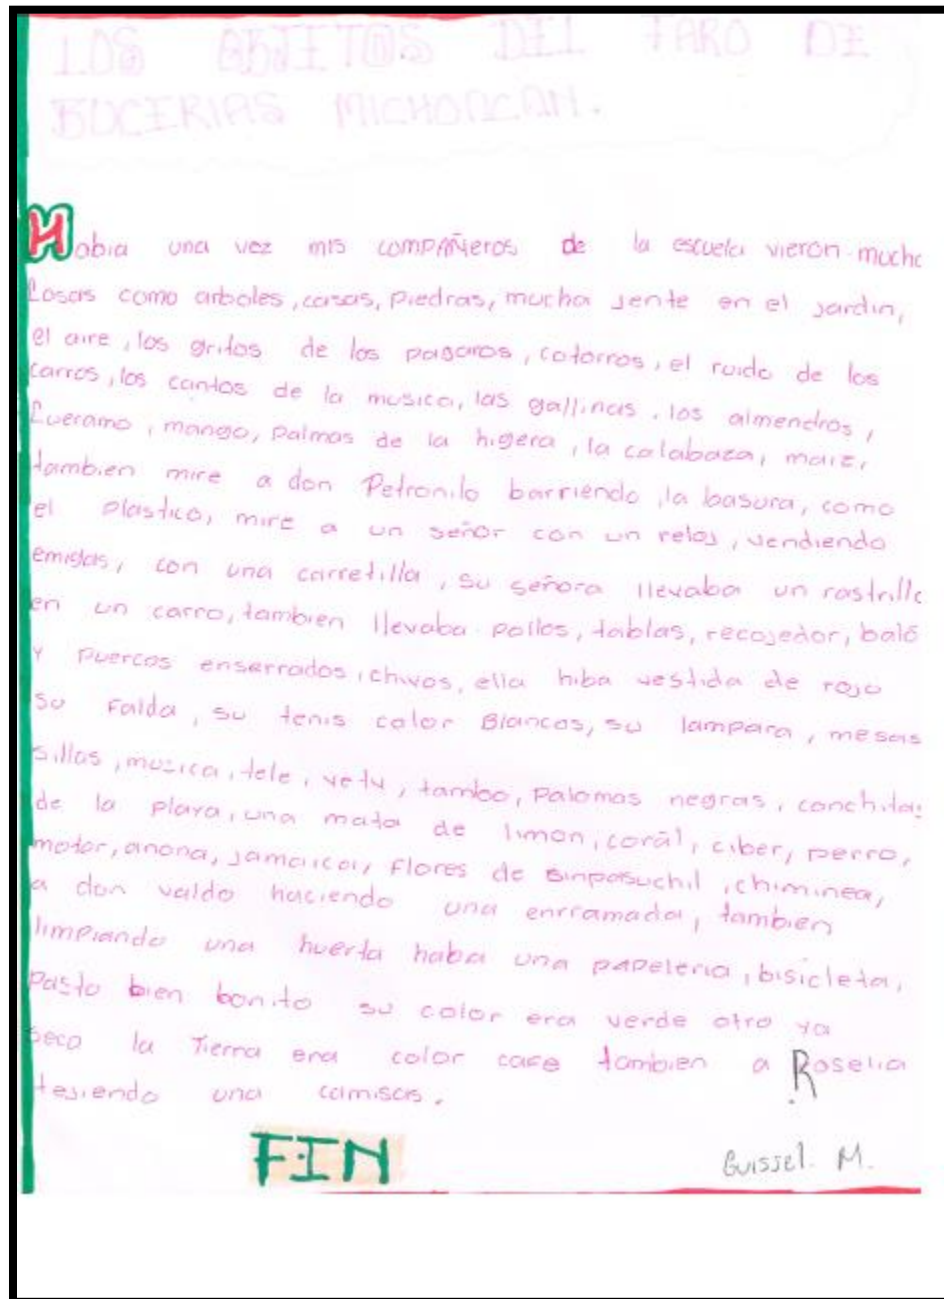 LOS OBJETOS DEL FARO DE
BUCERIAS MICHOACAN.
Habia una vez mis compañeros de la escuela vieron mucha
Cosas como arboles, casas, piedras, mucha jente en el jardin,
el aire, los gritos de los pagaros, cotorros, el ruido de los
carros, los cantos de la musica, las gallinas, los almendros,
Cueramo, mango, palmas de la higera, la calabaza, maiz,
tambien mire a don Petronilo barriendo, la basura, como
el plastico, mire a un señor con un reloj, vendiendo
con una carretilla, su señora llevaba un rastrillo
en un carro, tambien llevaba pollos, tablas, recojedor, baló
y puercos enserrados, chivos, ella hiba vestida de rojo
su falda, su tenis color Blancos, su lampara, mesas
sillas, musica, tele, tambo, palomas negras, conchitas
de la playa, una mata de limon, corál, ciber, perro,
motor, anona, jamaica, flores de sinpasuchil, chiminea,
a don valdo haciendo una enrramada, tambien
limpiando una huerta haba una papeleria, bisicleta,
Pasto bien bonito su color era verde otro ya
seco la Tierra era color cafe tambien a Roselia
tejiendo una camisas.
FIN
Guissel. M.